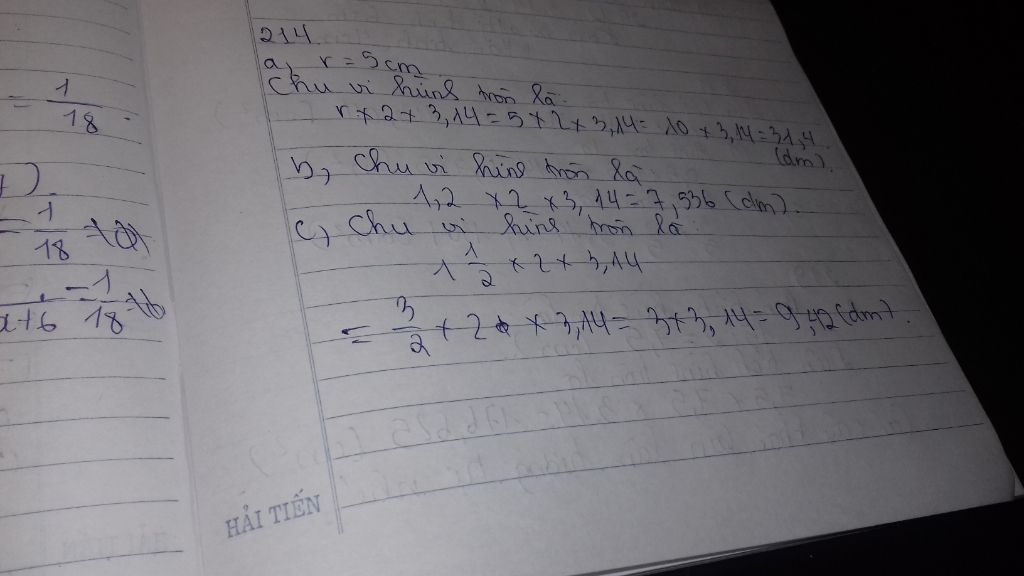 = 1/18
)
= 1/18
x+6 = 1/18
214
a, r = 5cm
Chu vi hình tròn là:
r × 2 × 3,14 = 5 × 2 × 3,14 = 10 × 3,14 = 31,4
(dm).
b, Chu vi hình tròn là
1,2 × 2 × 3,14 = 7,536 (dm).
c, Chu vi hình tròn là:
1 1/2 × 2 × 3,14
= 3/2 × 2 × 3,14 = 3 × 3,14 = 9,42 (dm).
HẢI TIẾN